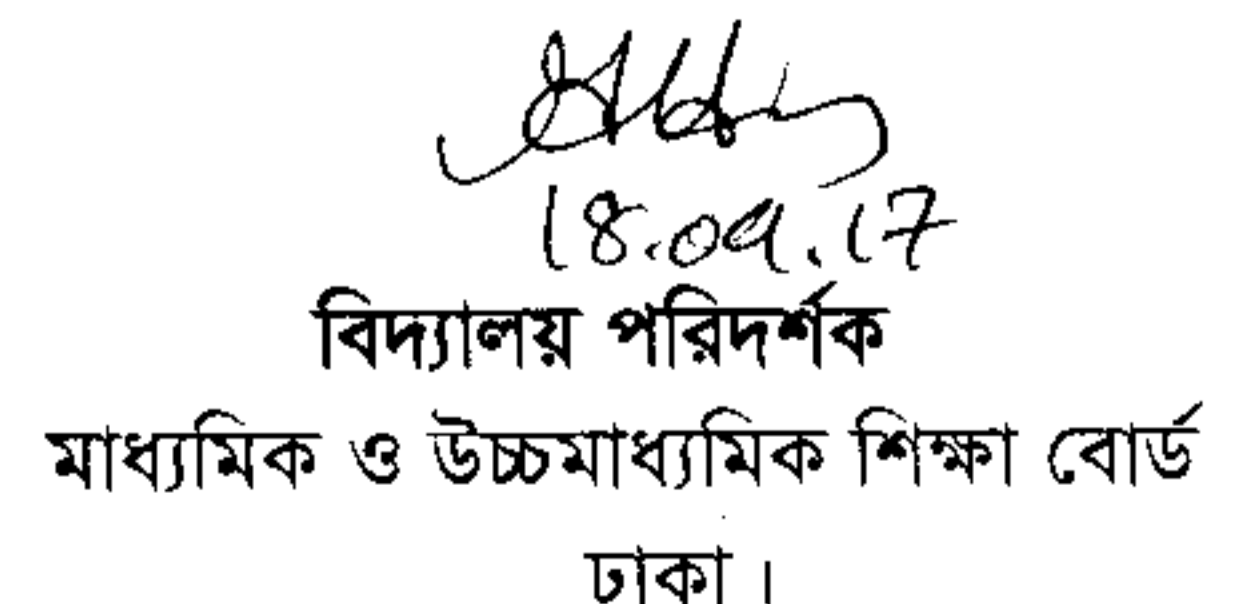 18.09.17
বিদ্যালয় পরিদর্শক
মাধ্যমিক ও উচ্চমাধ্যমিক শিক্ষা বোর্ড
ঢাকা ।